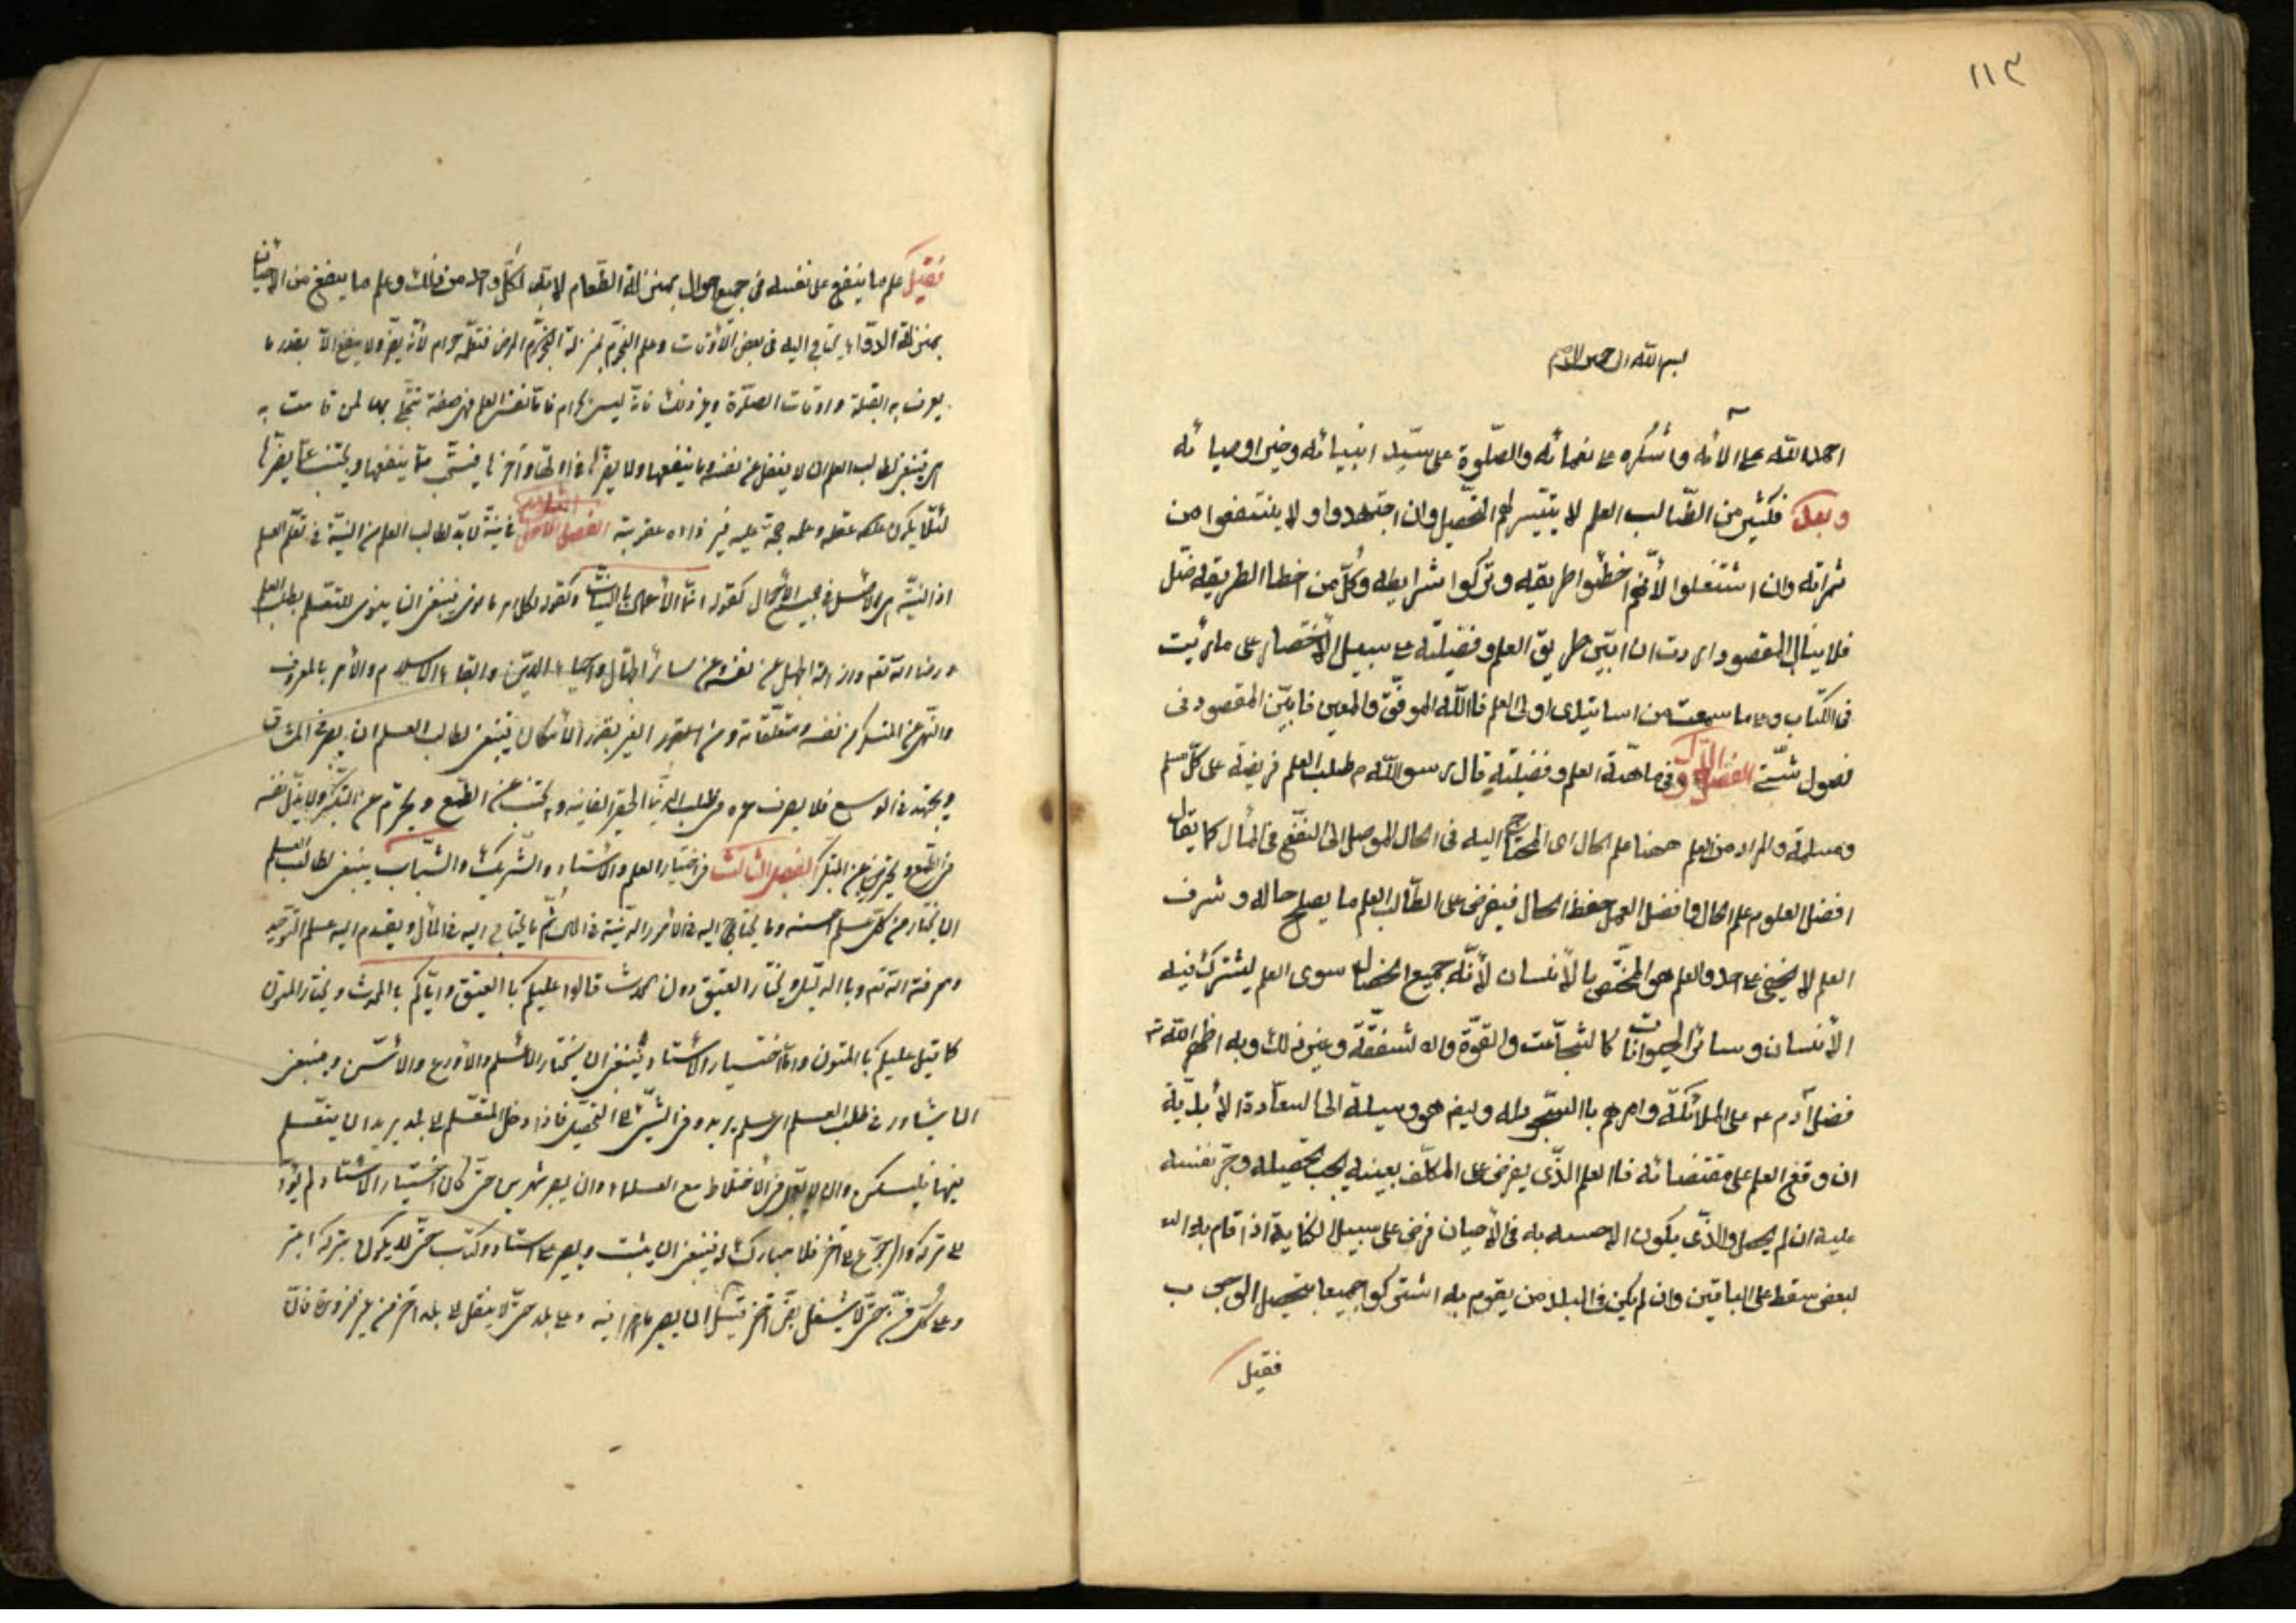 ١١٣
بسم الله الرحمن الرحيم
احمد الله على آلائه واشكره على نعمائه والصلوة على سيد انبيائه وخير اوصيائه
وبعد فكثير من الطالب العلم لا يتيسر لهم التحصيل وان اجتهدوا ولا ينتفعوا من
ثمراته وان اشتغلوا لأنهم اخطئوا طريقه وتركوا شرايطه وكل من اخطا الطريقه ضل
فلا ينال المقصود اردت ان ابين طريق العلم وفضيلته على سبيل الأختصار على ما رئيت
فى الكتاب وما سمعت من اساتيدى اولى العلم فا الله الموفق والمعين فابين المقصود فى
فصول شتى الفصل الاول فى ماهية العلم وفضيلته قال رسول الله ص طلب العلم فريضة على كل مسلم
ومسلمة والمراد من العلم ههنا علم الحال اى المحتاج اليه فى الحال الموصل الى النفع فى المأل كما يقال
افضل العلوم علم الحال وافضل العمل حفظ الحال فيفرض على الطالب العلم ما يصلح حاله وشرف
العلم لا يخفى على احد والعلم هو المختص با لأنسان لأنّه جميع الخصال سوى العلم يشترك فيه
الأنسان وسائر الحيوانات كا لشجاعت والقوة وا لشفقة وغير ذلك وبه اظهر الله تع
فضل آدم ع على الملائكة وامرهم باالسجود له وايضا هو وسيلة الى السعادة الأبدية
ان وقع العلم على مقتضائه فا العلم الذى يفرض على المكلف بعينه يجب تحصيله وجبر نفسه
عليه ان لم يحصل والذى يكون الاحسه به فى الأحيان فرض على سبيل الكفاية اذا قام به ال
لبعض سقط على الباقين وان لم يكن فى البلد من يقوم به اشتركوا جميعا بتحصيل الوجب ب
فقيل
فقيل علم ما ينفع على نفسه فى جميع احوال بمنزلة الطعام لابد لكل واحد من ذلك وعلم ما ينفع من الاحيان
بمنزلة الدواء يحتاج اليه فى بعض الأوقات وعلم النجوم بمنزلة المرض فتعلمه حرام لأنه يضر ولا ينفع الا بقدر ما
يعرف به القبلة واوقات الصلوة وغير ذلك فانه ليس بحرام فاما تفسير العلم فهو صفة يتجلى بها لمن قامت به
ينبغى لطالب العلم ان لا يغفل عن نفسه وما ينفعها وما يضرها فى اولها وآخرها فيستجب ما ينفعها ويجتنب عما يضرها
لئلا يكون عقله وعلمه حجة عليه فيزداد عقوبته الفصل الثانى فى نية لابد لطالب العلم من النية فى تعلم العلم
اذ النية هى الأصل فى جميع الأحوال كقوله انما الأعمال بالنيات وكقوله لكل امرء ما نوى ينبغى ان ينوى المتعلم بطلب العلم
رضاء الله تعه وازالة الجهل عن نفسه وعن سائر الجهال واحياء الدين وابقاء الاسلام والأمر بالمعروف
والنهى عن المنكر من نفسه ومتعلقاته ومن الغير بقدر الأمكان ينبغى لطالب العلم ان يصبر فى المشاق
ويجتهد فى الوسع فلا يصرف عمره فى طلب الدنيا الحقير الفانيه ويجتنب عن الطمع ويحترز عن التكبر ولا يذل نفسه
فى الطمع ويحترز عن التكبر الفصل الثالث فى اختيار العلم والاستاد والشريك والثبات ينبغى لطالب العلم
ان يختار من كل علم احسنه وما يحتاج اليه فى الأمور الدينية فى الحال ثم ما يحتاج اليه فى المأل ويقدم اليه علم التوحيد
ومعرفة الله تعه وباالدليل ويختار العتيق دون المحدث قالوا عليكم با العتيق واياكم با المحدث ويختار المتون
كما قيل عليكم با المتون واما اختيار الاستاد فينبغى ان يختار الاعلم والأورع والاسن وينبغى
ان يشاور فى طلب العلم اى علم يريد وفى السير الى التحصيل فاذا دخل المتعلم الى بلد يريد ان يتعلم
فيها فليكن ان لا يعجل فى الأختلاط مع العلماء وان يصبر شهرين حتى كان اختيار الاستاد لم يؤد
الى تركه والرجوع الى آخر فلا يبارك له فينبغى ان يثبت ويصبر على استاد وكتاب حتى لا يكون يتركه ابتر
وعلى كل فن حتى لا يشتغل بفن آخر قبل ان يصير ماهرا فيه وعلى بلد حتى لا ينتقل الى بلد آخر من غير ضرورة فان